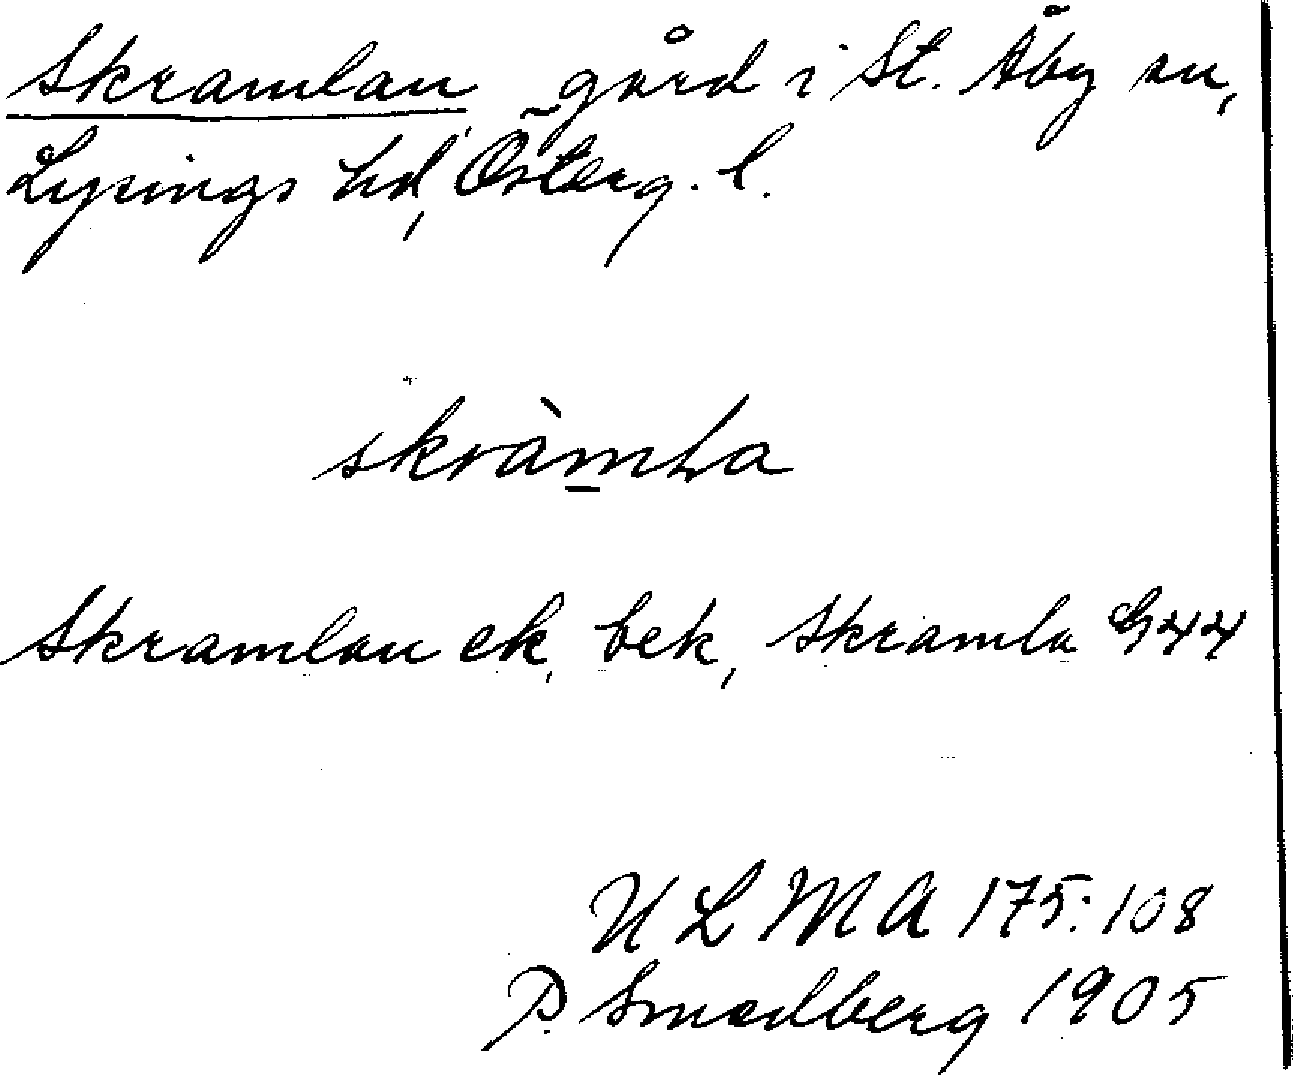 Skramlan gård i St. Åby sn,
Lysings hd, Österg. l.
skràmLa
Skramlan ek, bek, Skramla G44
ULMA 175:108
P. Smedberg 1905